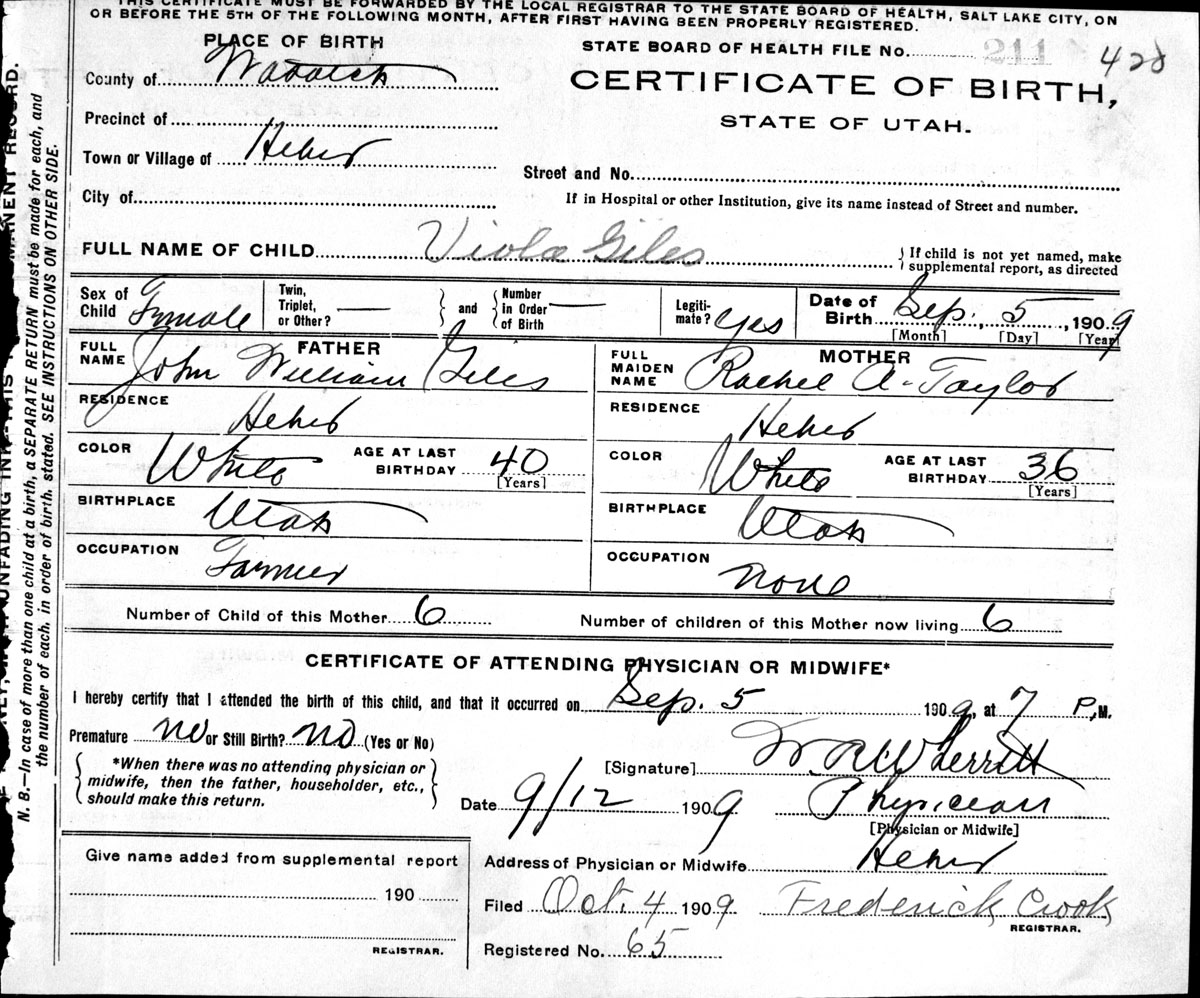 THIS CERTIFICATE MUST BE FORWARDED BY THE LOCAL REGISTRAR TO THE STATE BOARD OF HEALTH, SALT LAKE CITY, ON
OR BEFORE THE 5TH OF THE FOLLOWING MONTH, AFTER FIRST HAVING BEEN PROPERLY REGISTERED.
PLACE OF BIRTH
STATE BOARD OF HEALTH FILE No. 211 428
County of Wasatch
CERTIFICATE OF BIRTH,
STATE OF UTAH.
Precinct of
Town or Village of Heber
Street and No.
City of
If in Hospital or other Institution, give its name instead of Street and number.
FULL NAME OF CHILD Viola Giles
{ If child is not yet named, make
supplemental report, as directed
Sex of Child Female
Twin, Triplet, or Other? —
and
Number in Order of Birth —
Legiti-mate? yes
Date of Birth Sep. 5, 1909
[Month] [Day] [Year]
FATHER
FULL NAME John William Giles
RESIDENCE Heber
COLOR White
AGE AT LAST BIRTHDAY 40
[Years]
BIRTHPLACE Utah
OCCUPATION Farmer
MOTHER
FULL MAIDEN NAME Rachel A. Taylor
RESIDENCE Heber
COLOR White
AGE AT LAST BIRTHDAY 36
[Years]
BIRTHPLACE Utah
OCCUPATION none
Number of Child of this Mother 6
Number of children of this Mother now living 6
CERTIFICATE OF ATTENDING PHYSICIAN OR MIDWIFE*
I hereby certify that I attended the birth of this child, and that it occurred on Sep. 5 1909, at 7 P.M.
Premature no or Still Birth? no (Yes or No)
{ *When there was no attending physician or
midwife, then the father, householder, etc.,
should make this return. }
[Signature] W. R. Wherritt
Date 9/12 1909
Physician
[Physician or Midwife]
Give name added from supplemental report
190
REGISTRAR.
Address of Physician or Midwife Heber
Filed Oct. 4 1909 Frederick Crook
REGISTRAR.
Registered No. 65
N. B.—In case of more than one child at a birth, a SEPARATE RETURN must be made for each, and
the number of each, in order of birth, stated. SEE INSTRUCTIONS ON OTHER SIDE.
UNFADING INK—THIS
RECORD.